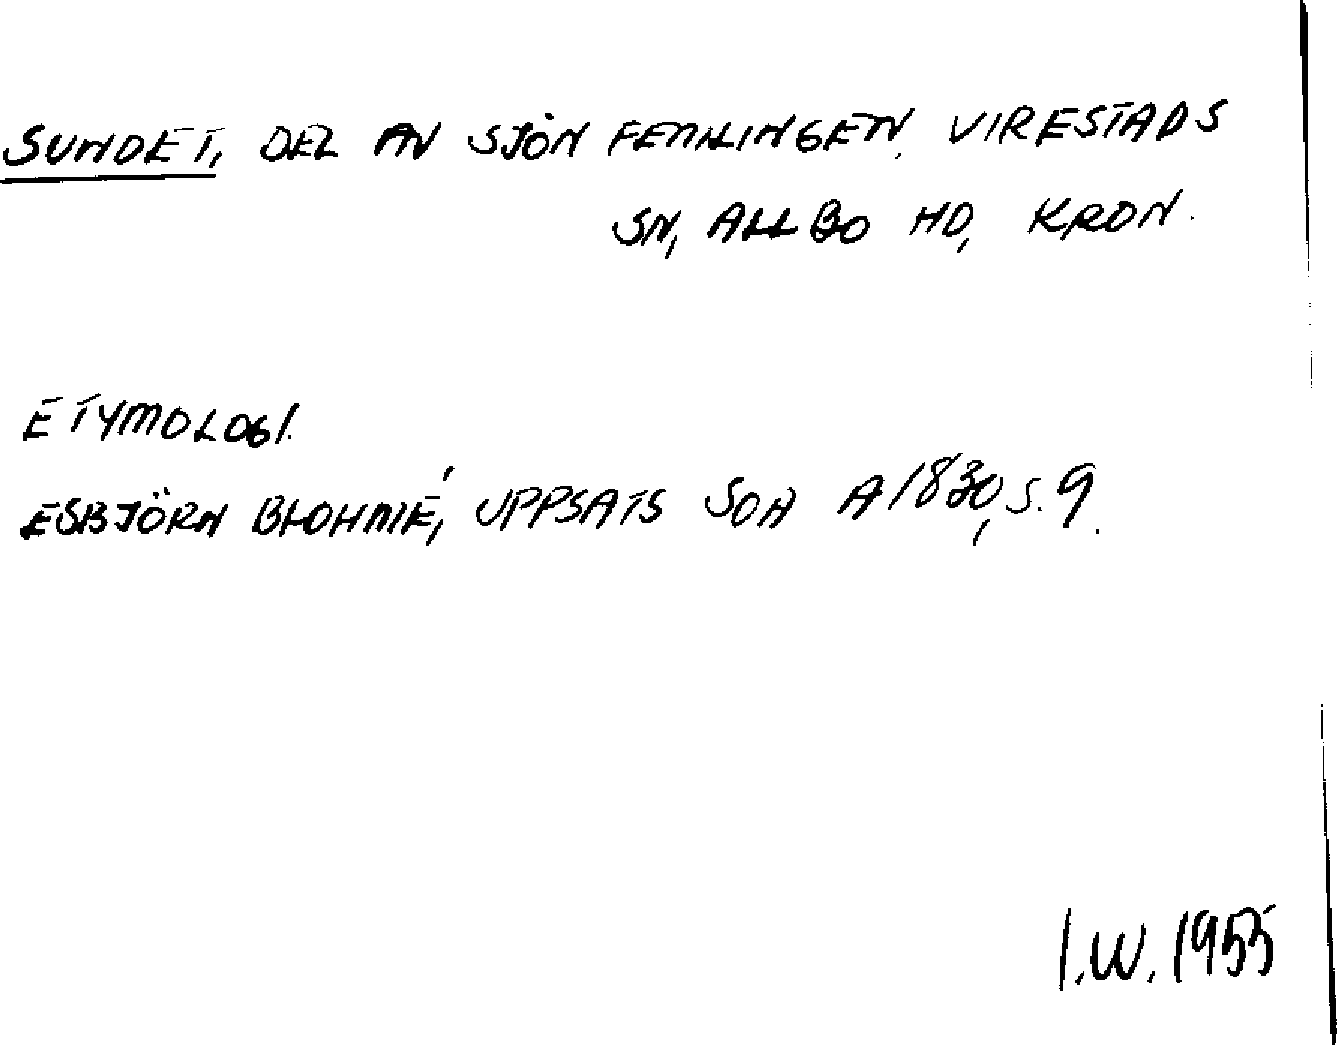 SUNDET, DEL AV SJÖN FEMLINGEN, VIRESTADS
SN, ALLBO HD, KRON.
ETYMOLOGI.
ESBJÖRN BLOHMÉ, UPPSATS SOA A1830, S. 9.
I.W. 1955